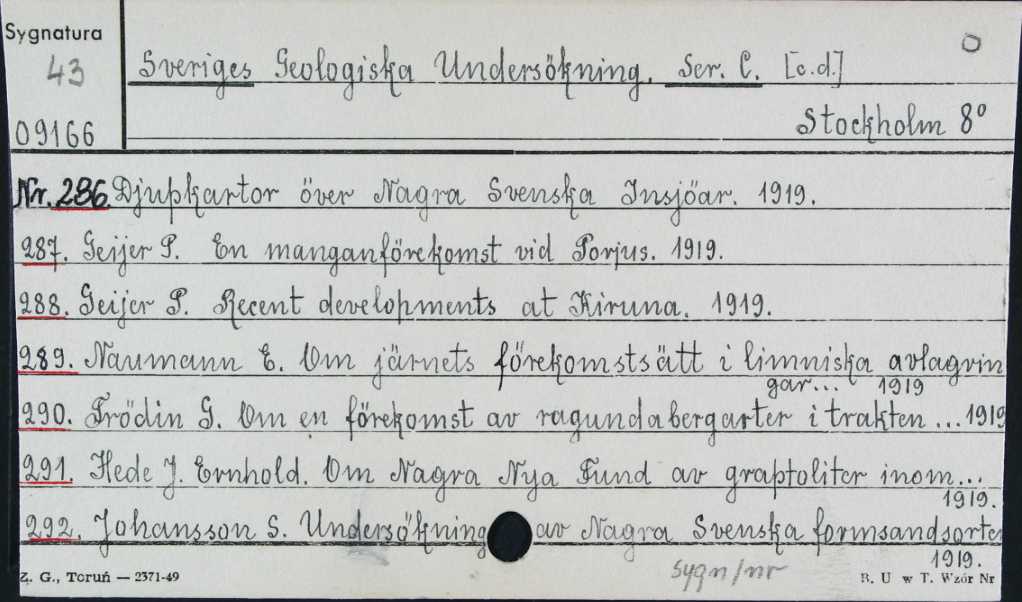 Sygnatura
43
Sveriges Geologiska Undersökning. Ser. C. [c.d.]
09166
Stockholm 8°
Nr. 286. Djupkartor över Nagra Svenska Insjöar. 1919.
287. Geijer P. En manganförekomst vid Porjus. 1919.
288. Geijer P. Recent developments at Kiruna. 1919.
289. Naumann E. Om järnets förekomstsätt i limniska avlagrin
gar... 1919
290. Frödin G. Om en förekomst av ragundabergarter i trakten ... 1919
291. Hede J. Ernhold. Om Nagra Nya Fund av graptoliter inom...
1919.
292. Johansson S. Undersökning av Nagra Svenska formsandsorter
1919.
sygn/nr
Z. G., Toruń — 2371-49
B. U w T. Wzór Nr